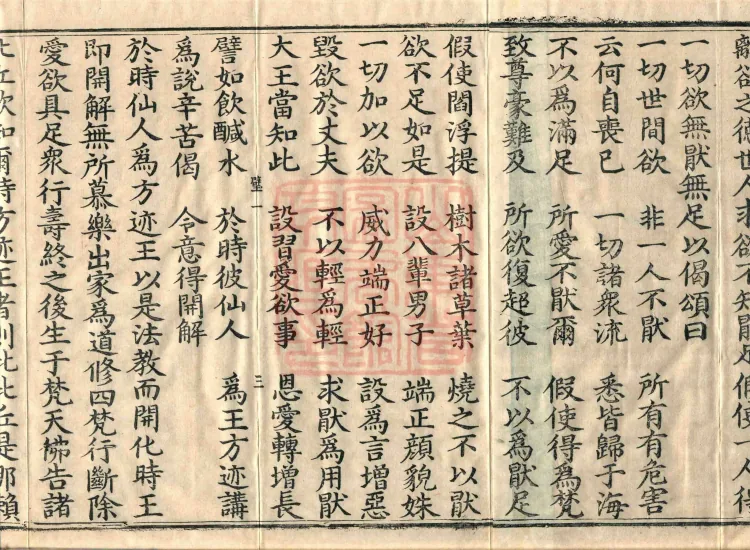 離欲之德世人非欲不知猒足假使一人得
一切欲無猒無足以偈頌曰
一切世間欲　非一人不猒　所有有危害
云何自喪已　一切諸衆流　悉皆歸于海
不以爲滿足　所愛不猒爾　假使得爲梵
致尊豪難及　所欲復超彼　不以爲猒足
假使閻浮提　樹木諸草葉　燒之不以猒
欲不足如是　設八輩男子　端正顏貌姝
一切加以欲　威力端正好　設爲言增惡
毀欲於丈夫　不以輕爲輕　求猒爲用猒
大王當知此　設習愛欲事　恩愛轉增長
壁一　三
譬如飲醎水　於時彼仙人　爲王方迹講
爲說辛苦偈　令意得開解
於時仙人爲方迹王以是法教而開化時王
即開解無所慕樂出家爲道修四梵行斷除
愛欲具足衆行壽終之後生于梵天佛告諸
比丘欲知爾時方迹王者則此比丘是那賴